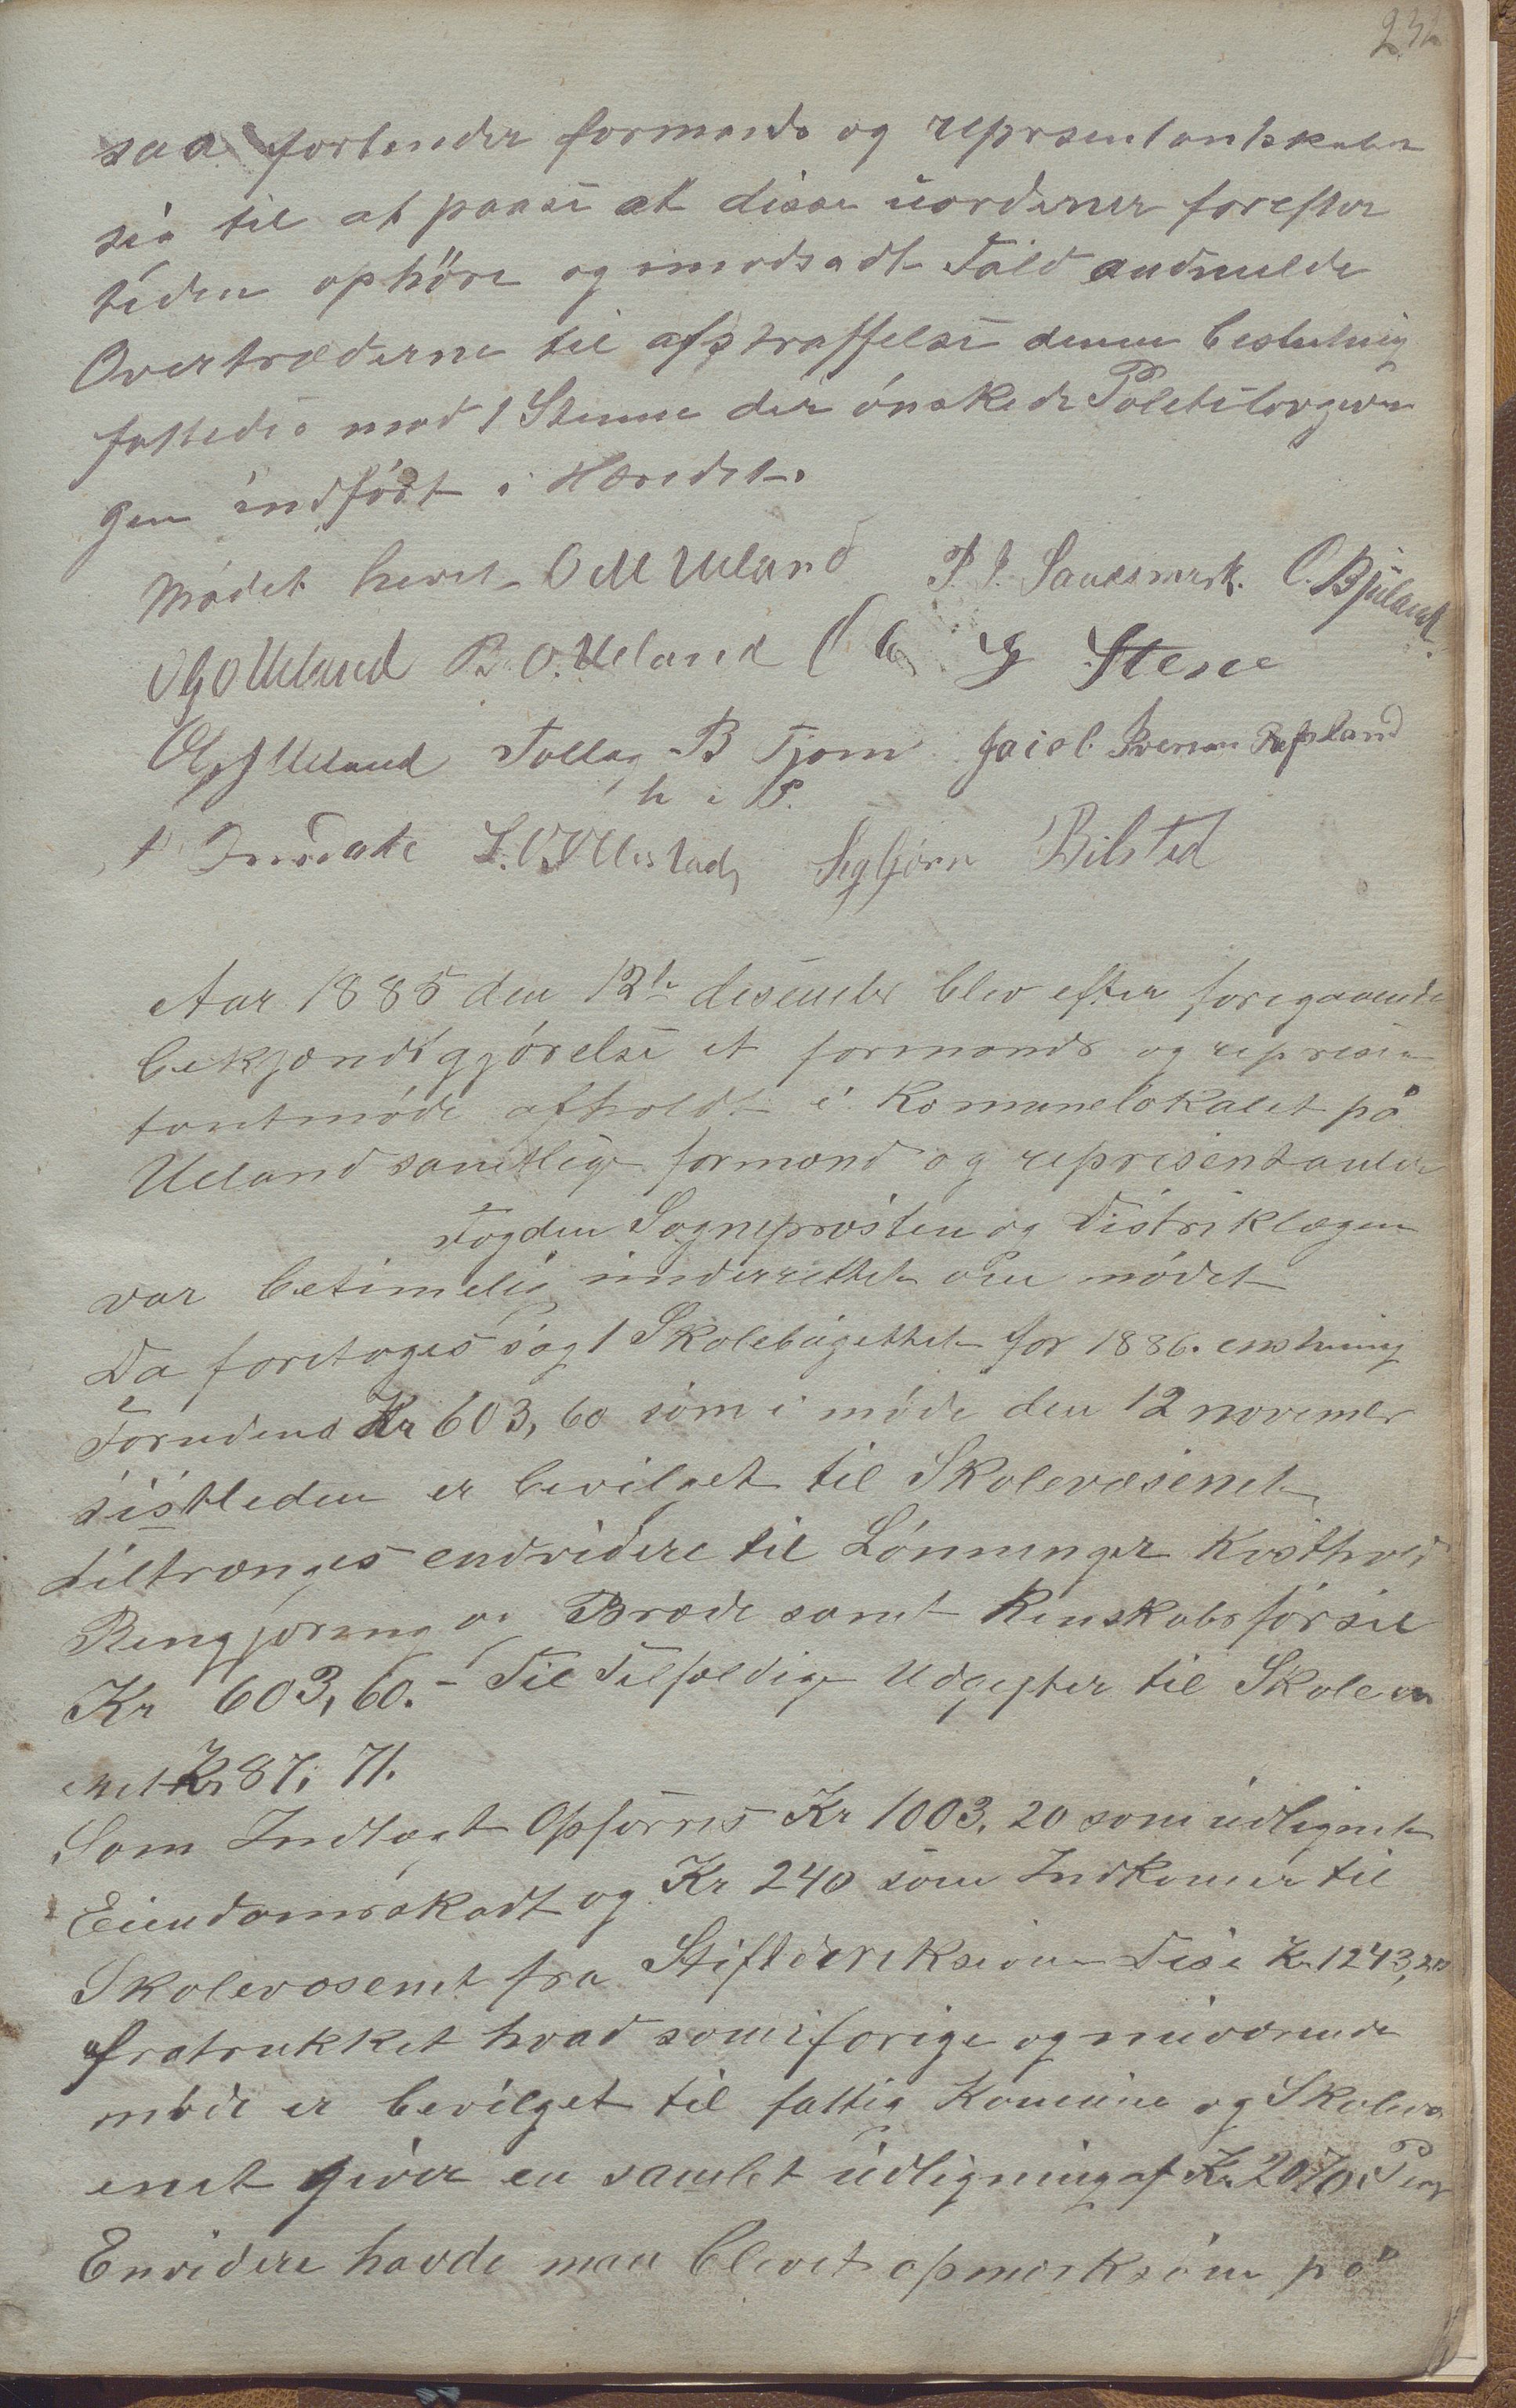 saa forbinder formands og reprsentantskabet
sig til at paase at disse uordener forefter
tiden ophöre og i modsadt Fald andmelde
Overtræderne til afstraffelse denne beslutnig
fattedes mod 1 Stemme der ónskede Politilovgivnin
gen indfórt i Heredet.
Módet hevet O M Ueland T. J. Sandsmark. O. Bjuland
O G O Ueland B. O. Ueland O G Stene
O J Ueland Tollag B Tjom Jacob Iversen Refsland
h i P.
T Indade S. O. Ollestad Segbjörn Bilsted
Aar 1885 den 12te desember blev efter foregaaende
bekjendtgjórelse et formands og represen
tantmóde afholdt i Komunelokalet på
Ueland samtlige formænd og representanter
Fogden Sogneprósten og Distriklægen
var betimelig underrettet om módet
Da foretoges sag 1 Skolebugettet for 1886. enstemig
Forudend Kr 603,60 som i móde den 12 november
sistleden er bevilget til Skolevæsenet
tiltrænges endvidere til Lónninger Kosthold
Rengjoring og Bræde samt Renskabsfórsel
Kr 603,60. - Til Tilfældige Udgifter til Skolevæ
enet Kr 87,71.
Som Indtægt Opfórres Kr 1003,20 som udlignet
Eiendomsskadt og Kr 240 som Indkommer til
Skolevæsenet fra Stiftdireksionen Disse Kr 1243,20
fratrukket hvad som i forige og nuværende
móde er bevilget til fattig Komune og Skolevæ
enet giver en samlet udligning af Kr 2070 i Peng
Envidere havde man blevet opmerksom på